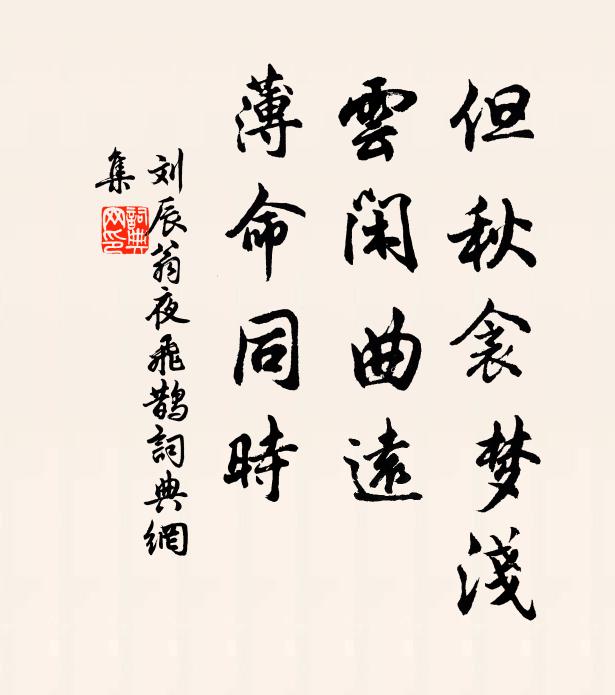 但秋衾梦淺
雲閑曲遠
薄命同時
刘辰翁夜飛鵲詞典網
集
詞典网印